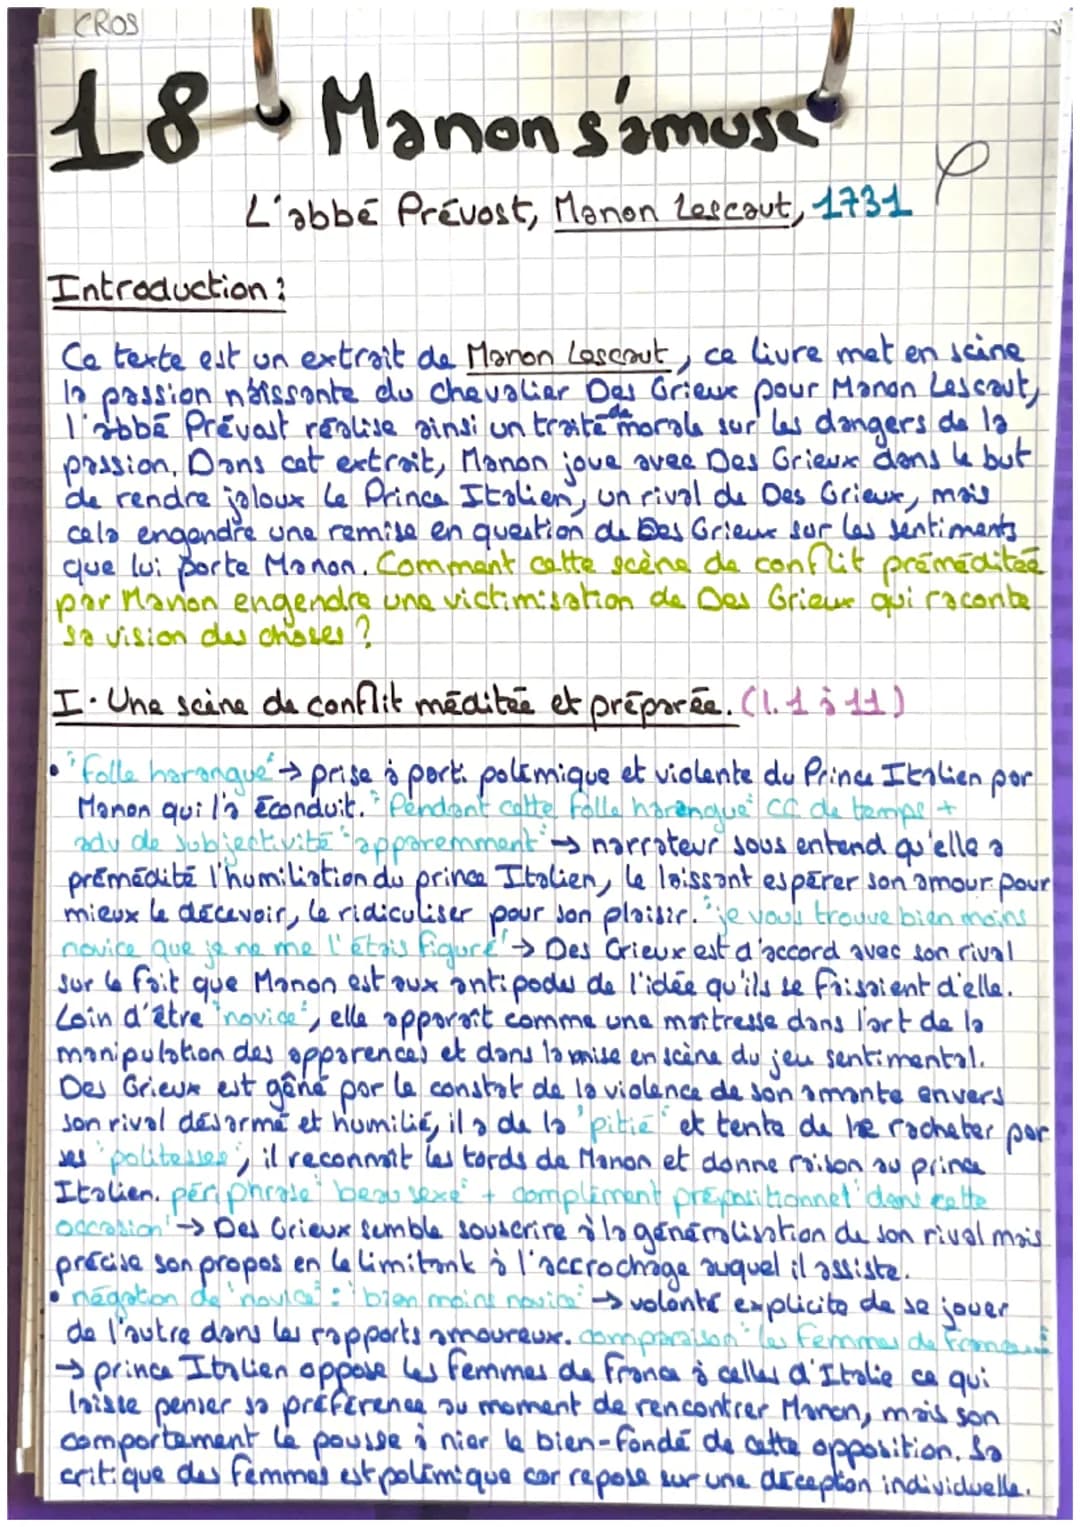 CROS
18 Manon s'amuse
L'abbé Prévost, Manon Lescaut, 1731
Introduction :
Ce texte est un extrait de Manon Lescaut, ce livre met en scène
la passion naissante du chevalier Des Grieux pour Manon Lescaut,
l'abbé Prévost réalise ainsi un traité de morale sur les dangers de la
passion. Dans cet extrait, Manon joue avec Des Grieux dans le but
de rendre jaloux le Prince Italien, un rival de Des Grieux, mais
cela engendre une remise en question de Des Grieux sur les sentiments
que lui porte Manon. Comment cette scène de conflit préméditée
par Manon engendre une victimisation de Des Grieux qui raconte
sa vision des choses ?
I. Une scène de conflit méditée et préparée. (l. 1 à 11)
• "folle harangue" → prise à parti polémique et violente du Prince Italien par
Manon qui l'a éconduit. "Pendant cette folle harangue" CC de temps +
adv de subjectivité "apparemment" → narrateur sous entend qu'elle a
prémédité l'humiliation du prince Italien, le laissant espérer son amour pour
mieux le décevoir, le ridiculiser pour son plaisir. "je vous trouve bien moins
novice que je ne me l'étais figuré" → Des Grieux est d'accord avec son rival
sur le fait que Manon est aux antipodes de l'idée qu'ils se faisaient d'elle.
Loin d'être "novice", elle apparaît comme une maîtresse dans l'art de la
manipulation des apparences et dans la mise en scène du jeu sentimental.
Des Grieux est gêné par le constat de la violence de son amante envers
son rival désarmé et humilié, il a de la "pitié" et tente de se racheter par
ses "politesses", il reconnaît les tords de Manon et donne raison au prince
Italien. périphrase "beau sexe" + complément prépositionnel "dans cette
occasion" → Des Grieux semble souscrire à la généralisation de son rival mais
précise son propos en le limitant à l'accrochage auquel il assiste.
• négation de "novice" : "bien moins novice" → volonté explicite de se jouer
de l'autre dans les rapports amoureux. comparaison "les femmes de France"
→ prince Italien oppose les femmes de France à celles d'Italie ce qui
laisse penser sa préférence au moment de rencontrer Manon, mais son
comportement le pousse à nier le bien-fondé de cette opposition. Sa
critique des femmes est polémique car repose sur une déception individuelle.